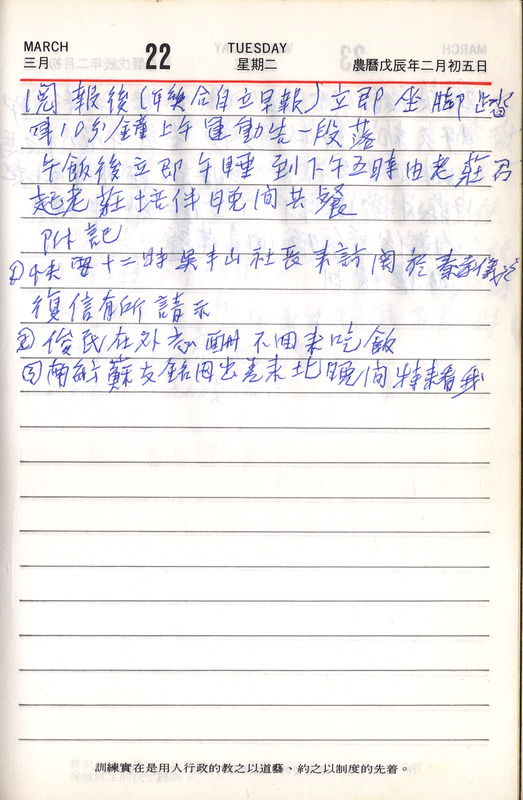 MARCH
三月
22
TUESDAY
星期二
農曆戊辰年二月初五日
閱報後(年 合自立早報)立即坐腳踏
10分鐘上午運動告一段落
午飯後立即午睡到下午五時由老莊
起老莊培伴晚间共餐
附記
① 十二時吳丰山社長來訪関於
復信有所請示
② 俊民在外 不回來吃飯
③ 蘇友銘因出差來北晚间特來看我
訓練實在是用人行政的教之以道藝、約之以制度的先着。